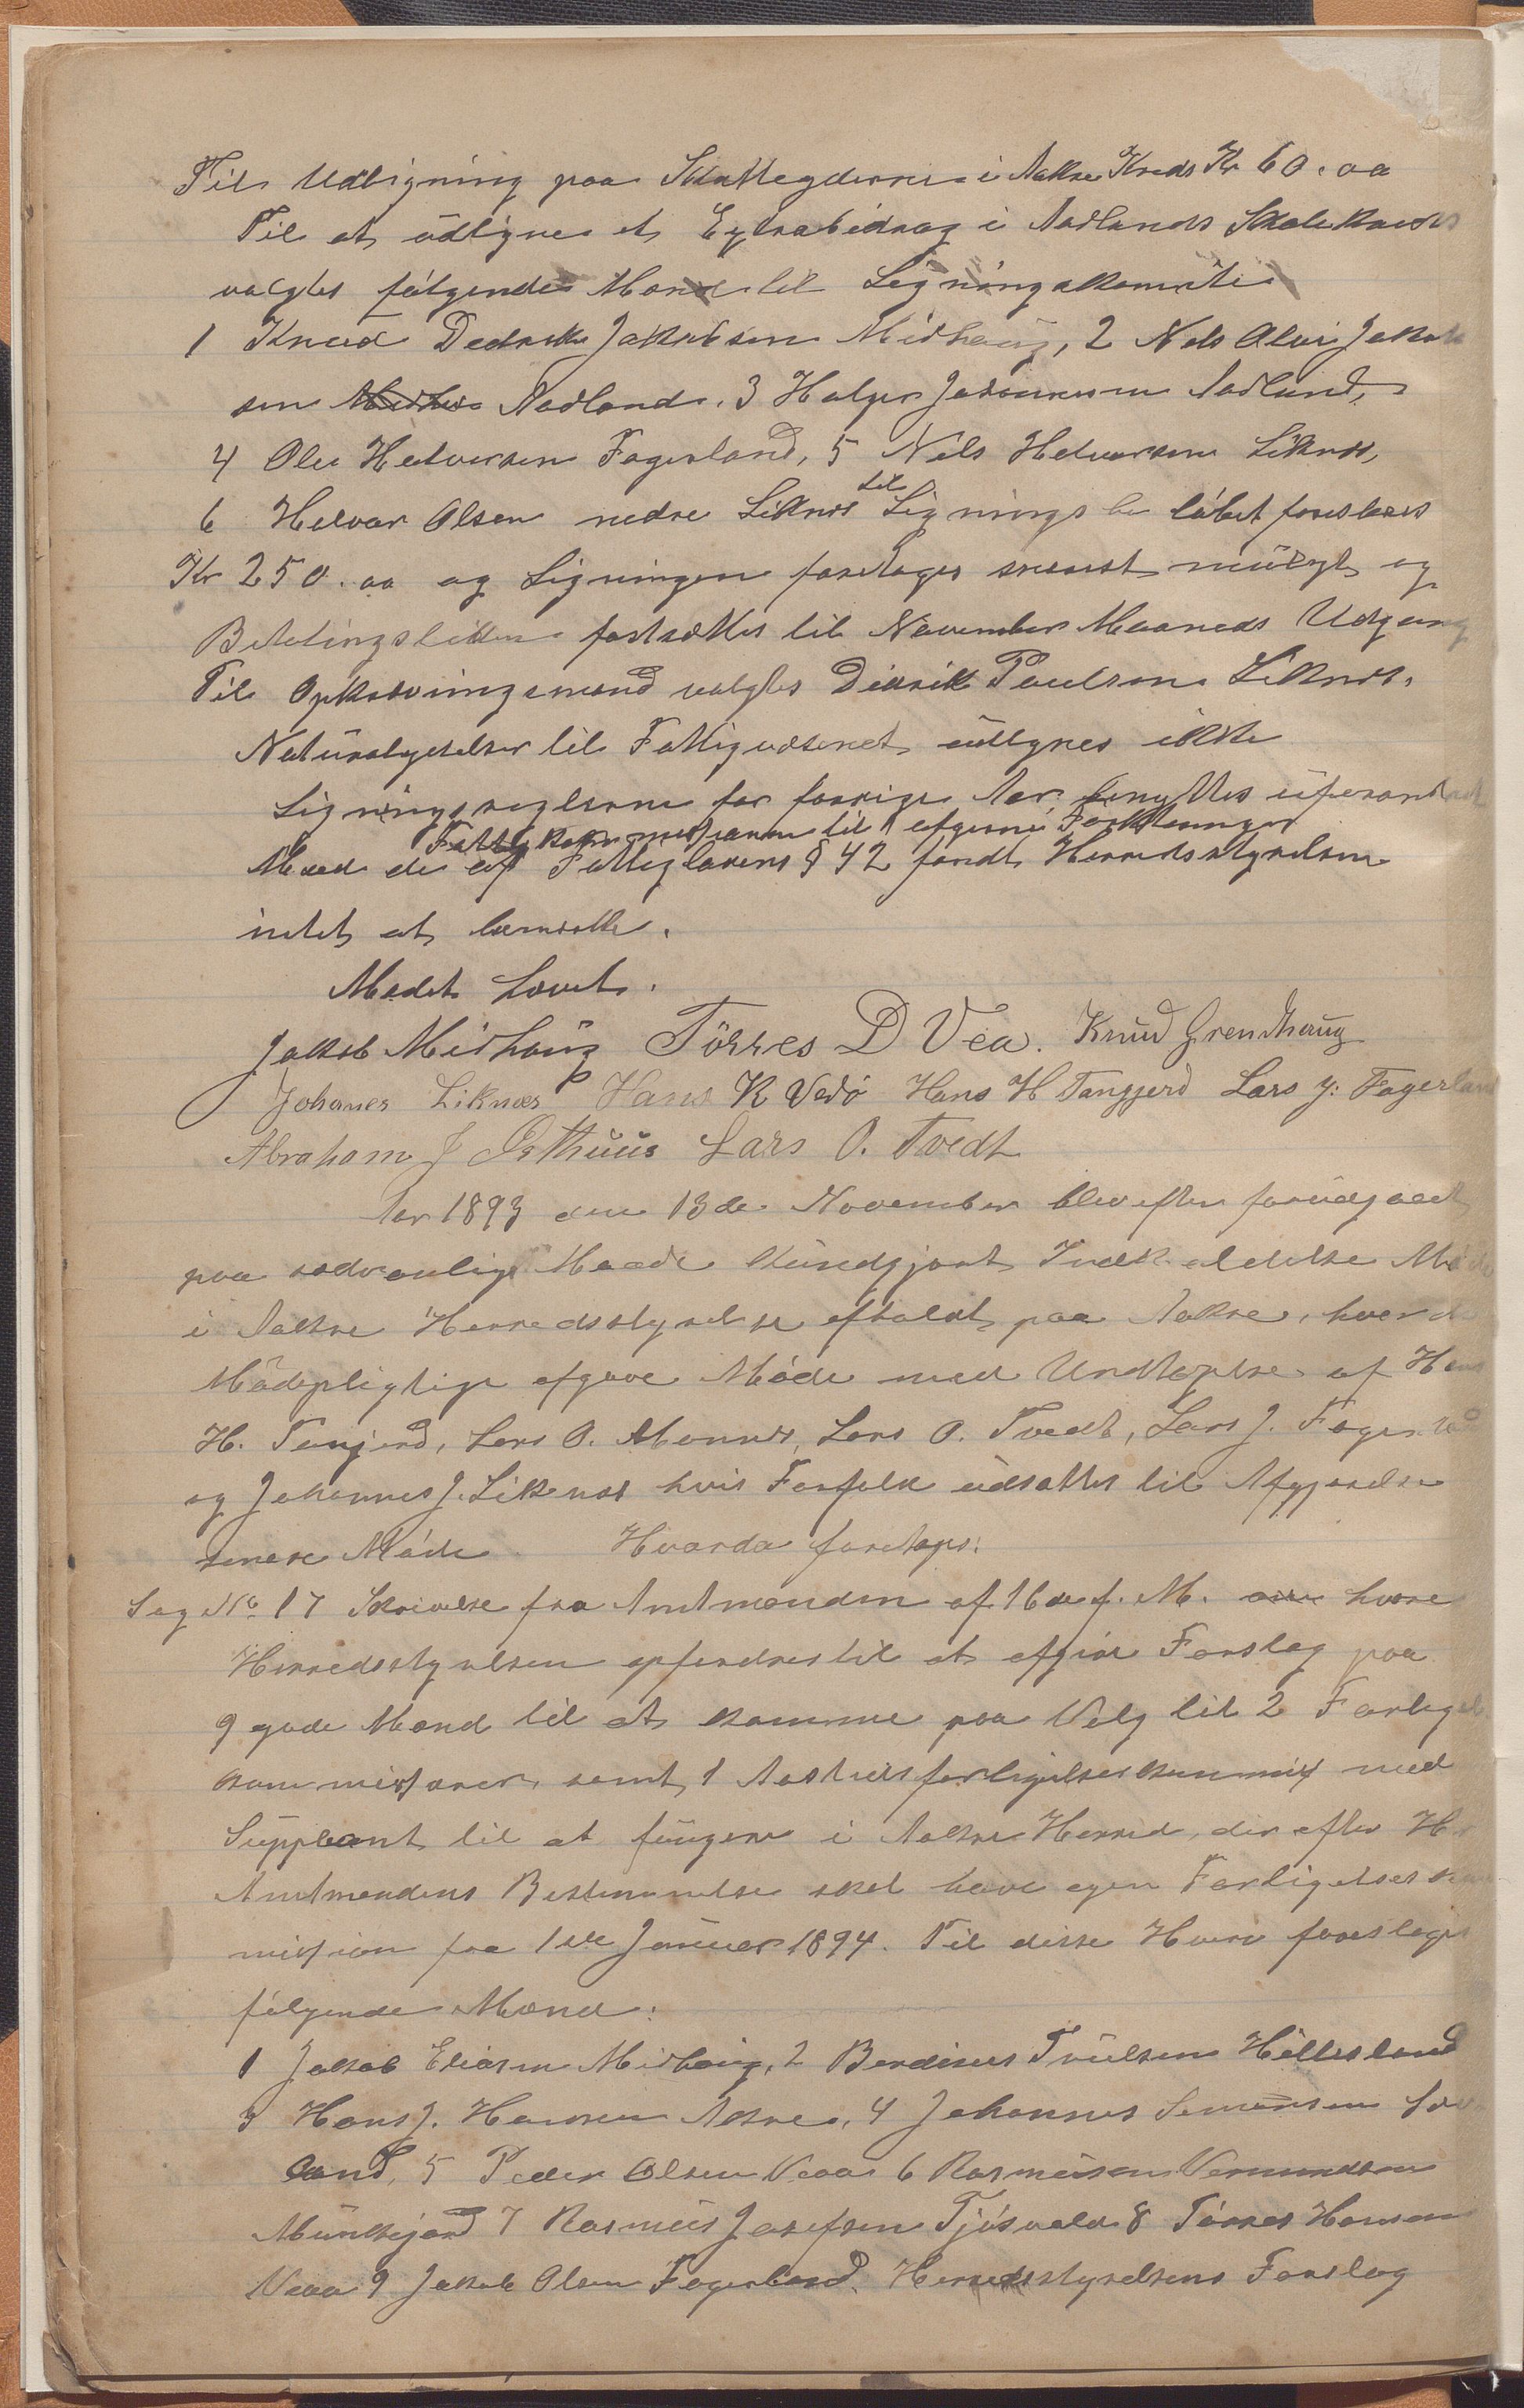 Til Udligning paa Skatteyderne i Aakre Kreds Kr 60.00
Til at udligne et Extrabidrag i Aadlands Skolekreds
valgtes følgende Mænd til Ligningskomite
1 Knud Jakobsen Midhaug, 2 Nels Olai Jakob
sen Aadland. 3 Holger Johannesen Aadland,
4 Ole Helversen Fagerland, 5 Nils Helversen Liknes,
6 Helvar Olsen nedre Liknes til Ligningsbeløbet foreslaaes
Kr 250.00 og Ligningen foretages snarest muligt og
Betalingstiden fastsættes til November Maaneds Udgang
Til Opkrævningsmand valgtes Didrik Paulsen Liknes.
Naturalydelser til Fattigvæsenet udlignes ikke
Ligningsreglerne for forrige Aar benyttes uforandret
Fattigkommissionen til afgivne Forklaringer
Mod de af Fattiglovens § 42 fandt Herredsstyrelsen
intet at bemærke.
Mødet hævet.
Jakob Midhaug Törres D Vea. Knud Grendhaug
Johanes Liknes Hans K Vedø Hans H Tangjerd Lars J. Fagerland
Abraham J Østhuus Lars O. Tvedt
Aar 1893 den 13de November blev efter forudgaaet
paa sædvanlige Maade kundgjort Indkaldelse Møde
i Aakre Herredsstyrelse afholdt paa Aakre, hvor de
Mödepligtige afgave Møde med Undtagelse af Hans
H. Tangjerd, Lars O. Munnes, Lars O. Tvedt, Lars J. Fagerland
og Johannes J. Liknes hvis Forfald udsattes til Afgjørelse
senere Møde. Hvorda foretoges:
Sag No 17 Skrivelse fra Amtmanden af 16de f. M. hvore
Herredsstyrelsen opfordres til at afgive Forslag paa
9 gode Mænd til at komme paa Valg til 2 Forligel
kommissærer, samt 1 forligelseskommis med
Suppleant til at fungere i Aakre Herred, der efter Hr
Amtmandens Bestemmelse skal have egen Forligelseskom
mission fra 1ste Januar 1894. Til disse Hverv foreslages
følgende Mænd:
1 Jakob Eliasen Midhaug, 2 Berdinus Trulsen Hillesland
3 Hans J. Hansen Aakre, 4 Johannes Simonsen
land, 5 Peder Olsen Veaa 6 Rasmusen Vermundsen
Munkejord 7 Rasmus Josefsen Tjøsvold 8 Törres Hansen
Veaa 9 Jakob Olsen Fagerland. Herredsstyrelsens Forslag